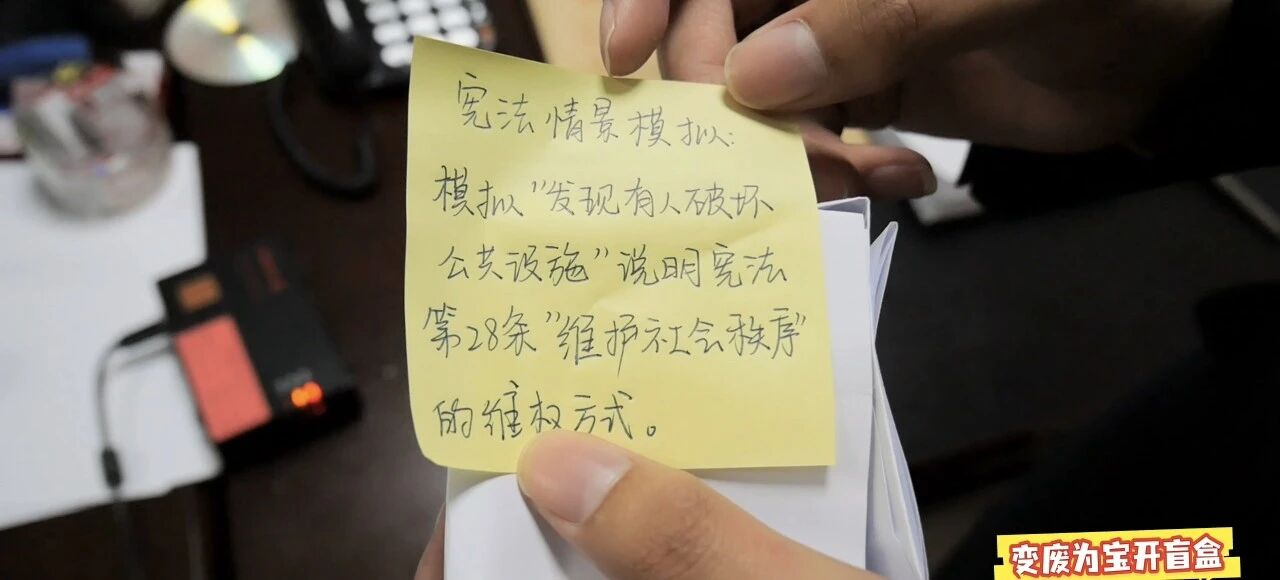 宪法情景模拟:
模拟“发现有人破坏
公共设施”说明宪法
第28条“维护社会秩序”
的维权方式。
变废为宝开盲盒